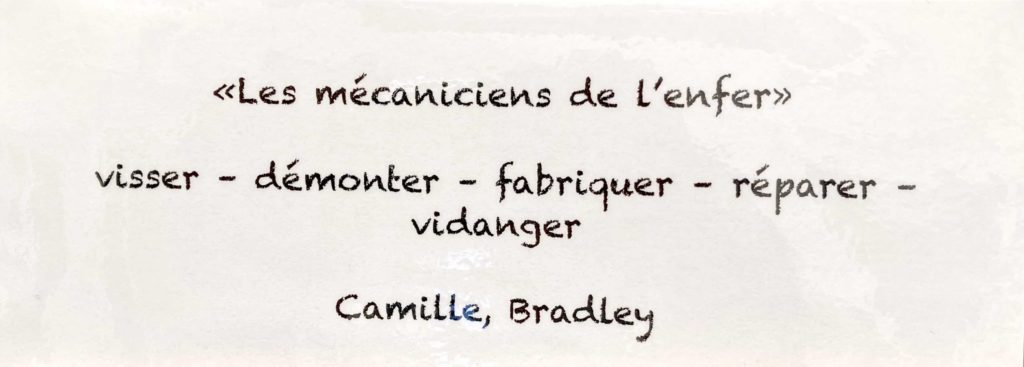 «Les mécaniciens de l'enfer»
visser - démonter - fabriquer - réparer -
vidanger
Camille, Bradley